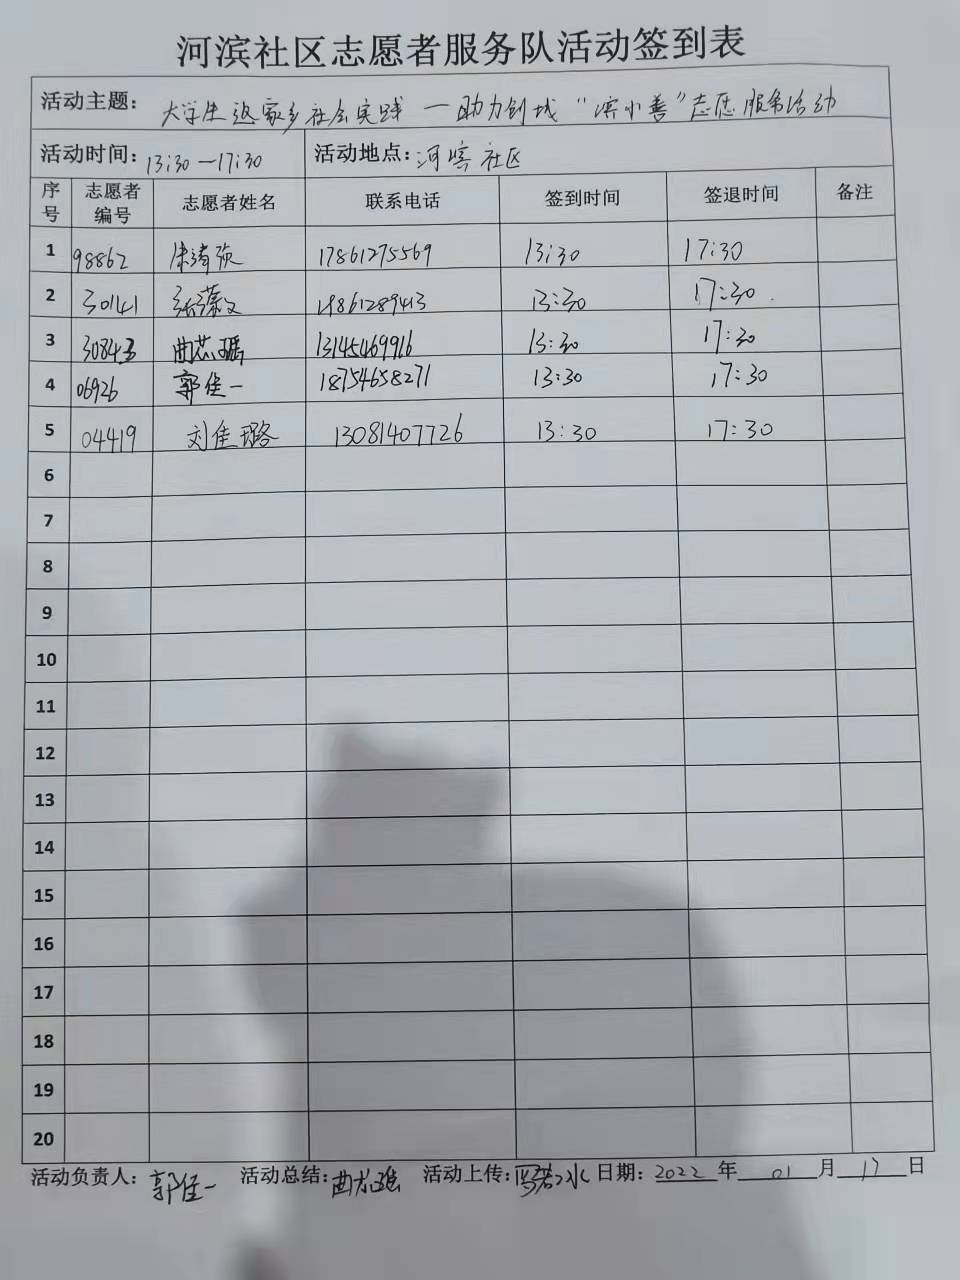 河滨社区志愿者服务队活动签到表
活动主题: 大学生返家乡社会实践 — 助力创城 "滨小善" 志愿服务活动
活动时间: 13:30 — 17:30 活动地点: 河滨社区
序号 志愿者编号 志愿者姓名 联系电话 签到时间 签退时间 备注
1 98862 17861275569 13:30 17:30
2 30141 13:30 17:30
3 30843 13145469916 13:30 17:30
4 06926 郭佳一 18754658271 13:30 17:30
5 04419 刘佳璐 13081407726 13:30 17:30
6
7
8
9
10
11
12
13
14
15
16
17
18
19
20
活动负责人: 郭佳一 活动总结: 活动上传: 日期: 2022 年 01 月 17 日